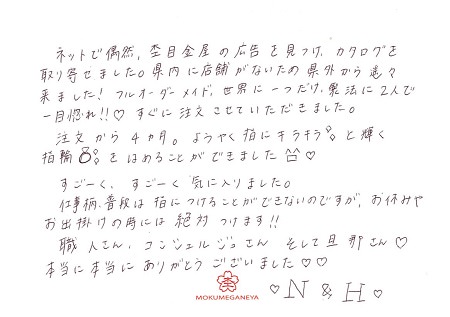 ネットで偶然、杢目金屋の広告を見つけ、カタログを
取り寄せました。県内に店舗がないため県外から遥々
来ました！フルオーダーメイド、世界に一つだけ、製法に2人で
一目惚れ!!♡すぐに注文させていただきました。
注文から4ヵ月。ようやく指にキラキラと輝く
指輪をはめることができました♡
すごーく、すごーく気に入りました。
仕事柄、普段は指につけることができないのですが、お休みや
お出掛けの時には絶対つけます!!
職人さん、コンシェルジュさん そして旦那さん♡
本当に本当にありがとうございました♡♡
♡N & H♡
MOKUMEGANEYA